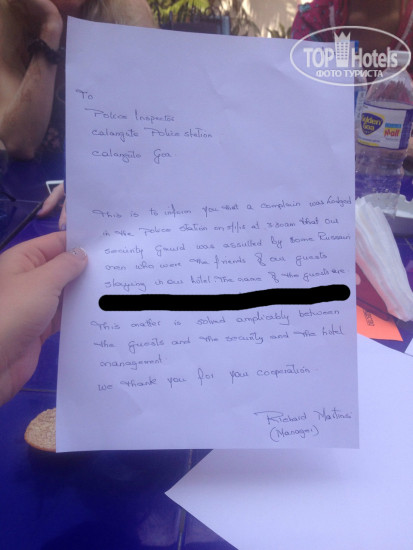 TOPHotels
ФОТО ТУРИСТА
To
Police Inspector
calangute Police station
calangute Goa
This is to inform you that a complain was lodged
in the Police station on at that our
security Gaurd was assulted by some Russain
men who were the friends of our guests
staying in our hotel the name of the guests are
This matter is solved amplicably between
the guests and the security and the hotel
management.
We thank you for your cooperation.
Richard Martins
(Manager)